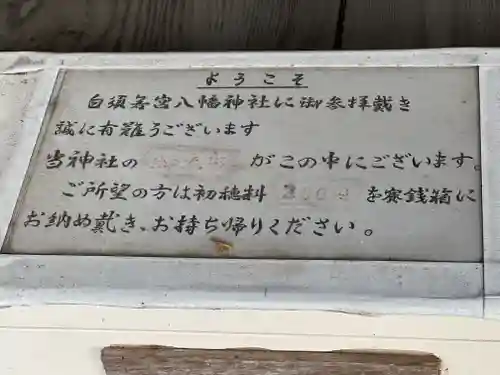 ようこそ
白須若宮八幡神社に御参拝戴き
誠に有難うございます
当神社の がこの中にございます。
ご所望の方は初穂料 を賽銭箱に
お納め戴き、お持ち帰りください。